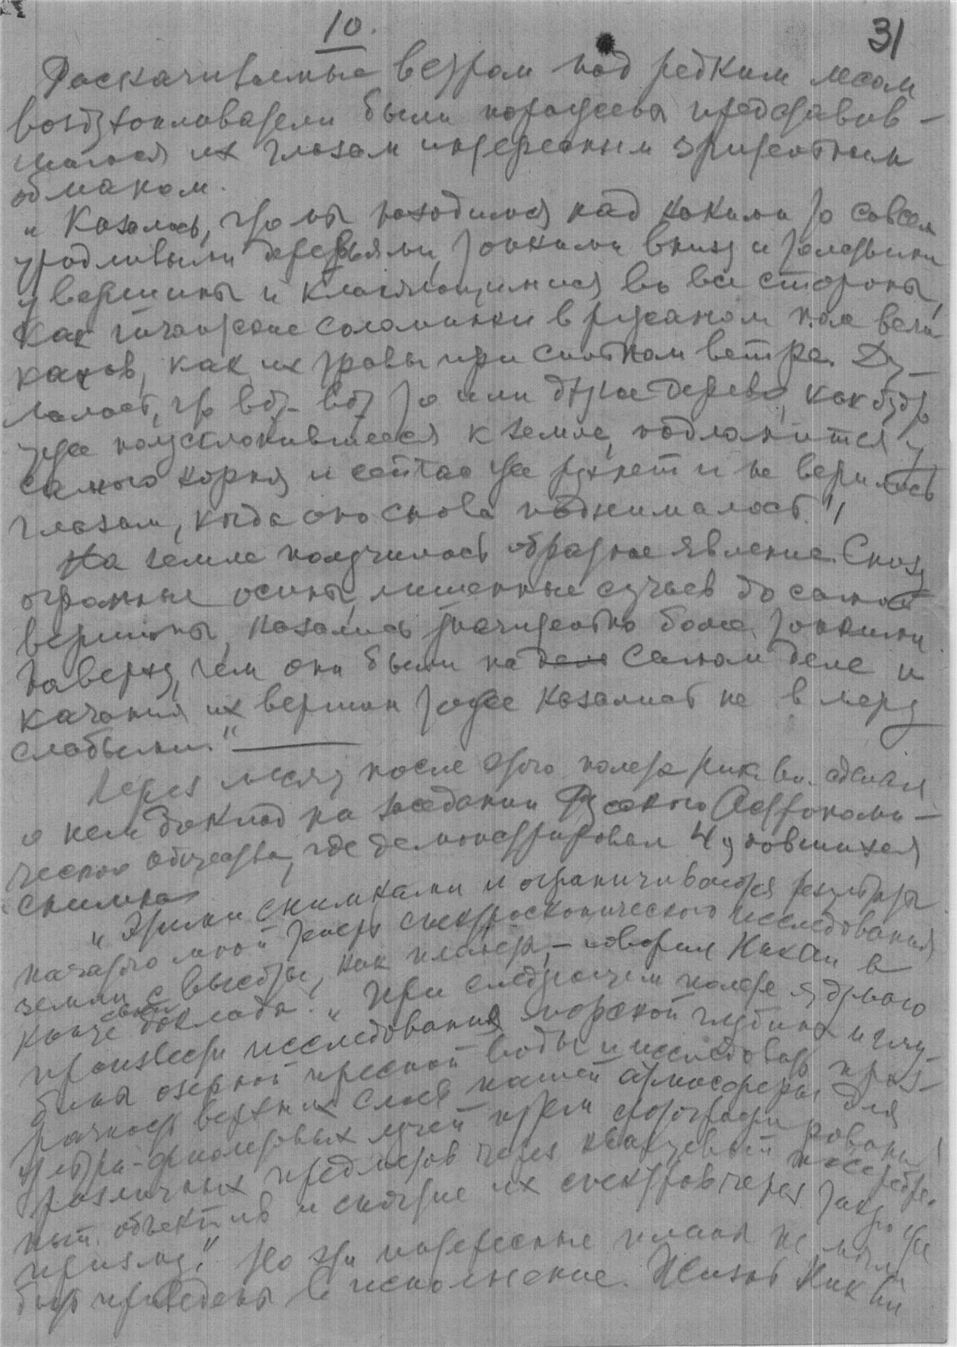 10.
31
Раскачиваемые ветром над редким лесом
воздухоплаватели были поражены представив-
шимся их глазам интересным зрительным
обманом.
„Казалось, что мы находимся над какими то совсем
уродливыми деревьями, тонкими внизу и толстыми
у вершины и кланяющимися во все стороны,
как гигантские соломинки в ржаном поле вели-
канов, как их травы при сильном ветре. Ду-
малось, что вот-вот то или другое дерево, как будто
уже полусклонившееся к земле, подломится у
самого корня и сейчас же рухнет и не верилось
глазам, когда оно снова поднималось.“
На земле получилось обратное явление. Снизу
огромные осины, лишенные сучьев до самой
вершины, казались значительно более тонкими
наверху, чем они были на самом деле и
качания их вершин тоже казались не в меру
слабыми.“
Через месяц после этого полета Ник. Ал. сделал
о нем доклад на заседании Русского Астрономи-
ческого общества, где демонстрировал 4 удавшихся
снимка
„Этими снимками и ограничиваются результаты
начатого мной теперь спектроскопического исследования
земли с высоты, как планеты, – говорил Ник. Ал. в
конце своего доклада. „При следующем полете я думаю
произвести исследования морской глубины и глу-
бины озерной пресной воды и исследовать проз-
рачность верхних слоев нашей атмосферы для
ультра-фиолетовых лучей путем фотографирования
различных предметов через кварцевый посеребрен-
ный объектив и снятие их спектров через такую же
призму.“ Но эти интересные планы не могли
быть приведены в исполнение. Жизнь Ник. Ал.